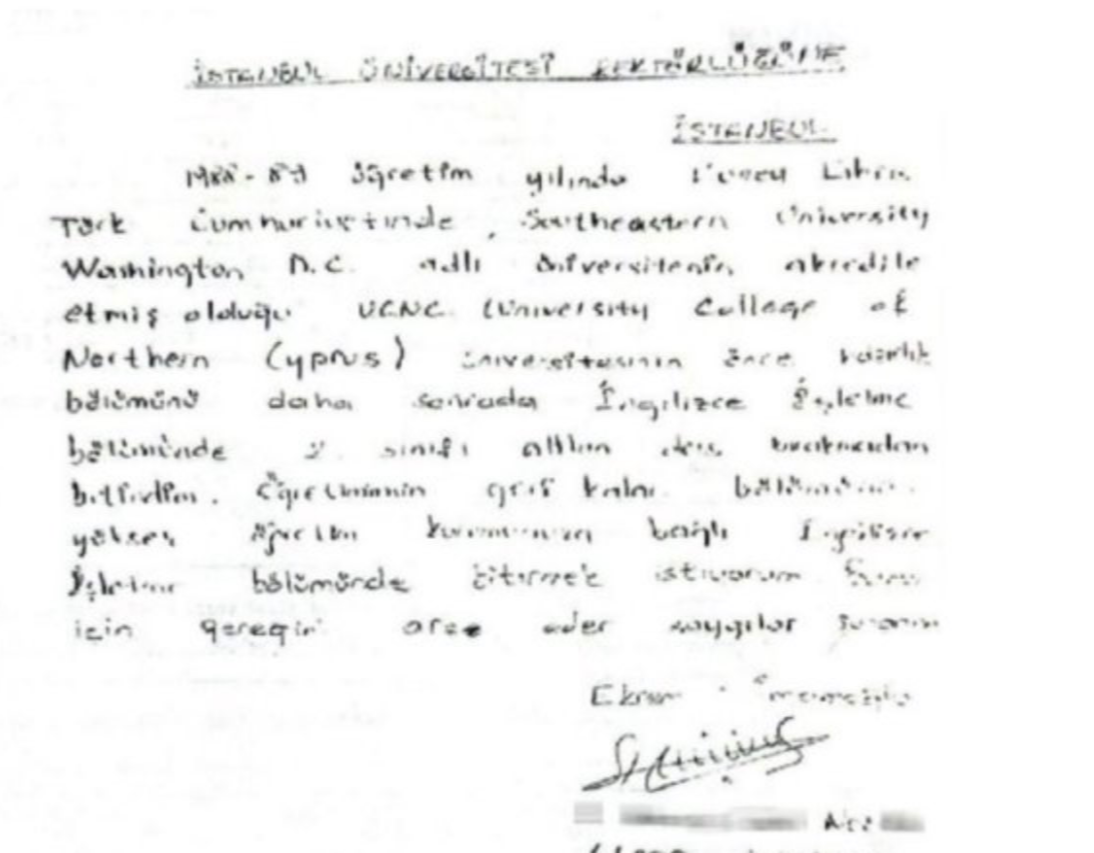 İSTANBUL ÜNİVERSİTESİ REKTÖRLÜĞÜNE
İSTANBUL
1988-89 öğretim yılında Kuzey Kıbrıs
Türk Cumhuriyetinde, Southeastern University
Washington D.C. adlı üniversitenin akredite
etmiş olduğu UCNC (University College of
Northern Cyprus) üniversitesinin önce
bölümünü daha sonrada İngilizce İşletme
bölümünde 2. sınıfı alttan ders bırakmadan
bitirdim. Öğretimimin geri kalan bölümünü
yüksek öğretim kurumunuza bağlı İngilizce
İşletme bölümünde bitirmek istiyorum
için gereğini arz eder saygılar sunarım
Ekrem İmamoğlu